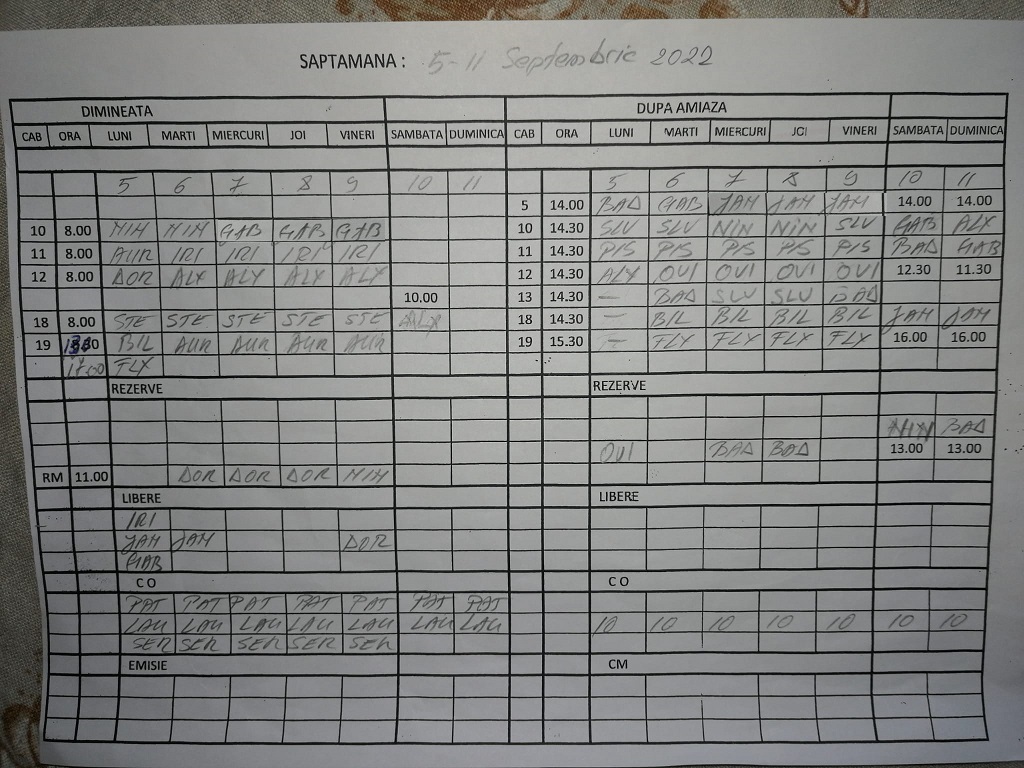 SAPTAMANA : 5-11 Septembrie 2022
DIMINEATA DUPA AMIAZA
CAB ORA LUNI MARTI MIERCURI JOI VINERI SAMBATA DUMINICA CAB ORA LUNI MARTI MIERCURI JOI VINERI SAMBATA DUMINICA
5 6 7 8 9 10 11 5 6 7 8 9 10 11
5 14.00 BAD GAB JAM JAM JAM 14.00 14.00
10 8.00 MIH MIH GAB GAB GAB 10 14.30 SLV SLV NIN NIN SLV GAB ALX
11 8.00 AUR IRI IRI IRI IRI 11 14.30 PIS PIS PIS PIS PIS BAD GAB
12 8.00 DOR ALX ALX ALX ALX 12 14.30 ALX OVI OVI OVI OVI 12.30 11.30
10.00 13 14.30 — BAD SLV SLV BAD
18 8.00 STE STE STE STE STE ALX 18 14.30 — BIL BIL BIL BIL JAM JAM
19 BIL AUR AUR AUR AUR 19 15.30 — FLX FLX FLX FLX 16.00 16.00
17.00 FLX
REZERVE REZERVE
NIN BAD
OVI BAD BAD 13.00 13.00
RM 11.00 DOR DOR DOR MIH
LIBERE LIBERE
IRI
JAM JAM DOR
GAB
C O C O
PAT PAT PAT PAT PAT PAT PAT
LAU LAU LAU LAU LAU LAU LAU 10 10 10 10 10 10 10
SER SER SER SER SER
EMISIE CM